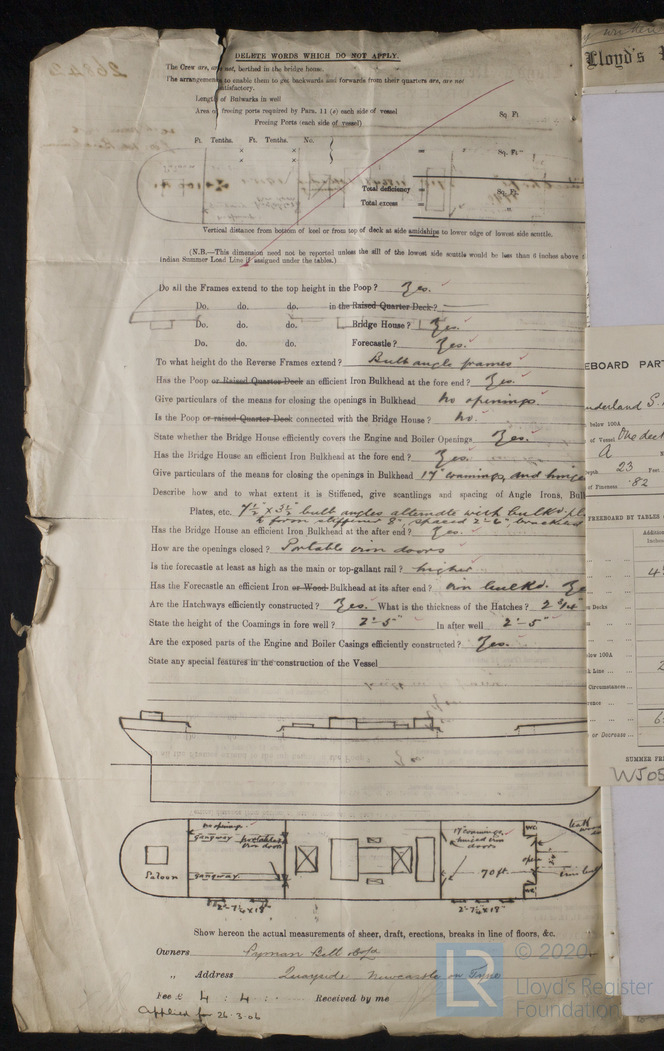 DELETE WORDS WHICH DO NOT APPLY.
The Crew are, are not, berthed in the bridge house.
The arrangements to enable them to get backwards and forwards from their quarters are, are not
satisfactory.
Length of Bulwarks in well
Area of freeing ports required by Para. 11 (e) each side of vessel Sq Ft
Freeing Ports (each side of vessel)
Ft. Tenths. Ft. Tenths. No.
× × = Sq. Ft
× ×
Total deficiency = Sq. Ft
Total excess = "
Vertical distance from bottom of keel or from top of deck at side amidships to lower edge of lowest side scuttle.
(N.B.—This dimension need not be reported unless the sill of the lowest side scuttle would be less than 6 inches above
Indian Summer Load Line if assigned under the tables.)
Do all the Frames extend to the top height in the Poop? Yes.
Do. do. do. in the Raised Quarter Deck?
Do. do. do. Bridge House? Yes.
Do. do. do. Forecastle? Yes.
To what height do the Reverse Frames extend? Bulb angle frames
Has the Poop or Raised Quarter Deck an efficient Iron Bulkhead at the fore end? Yes.
Give particulars of the means for closing the openings in Bulkhead no openings.
Is the Poop or raised Quarter Deck connected with the Bridge House? No.
State whether the Bridge House efficiently covers the Engine and Boiler Openings Yes.
Has the Bridge House an efficient Iron Bulkhead at the fore end? Yes.
Give particulars of the means for closing the openings in Bulkhead 17" coamings, and hinged
Describe how and to what extent it is Stiffened, give scantlings and spacing of Angle Irons, Bulb
Plates, etc. 7½" × 3½" bulb angles alternate with bulkd. pl
to form stiffener 8", spaced 2'-6", bracketed
Has the Bridge House an efficient Iron Bulkhead at the after end? Yes.
How are the openings closed? Portable iron doors
Is the forecastle at least as high as the main or top-gallant rail? higher
Has the Forecastle an efficient Iron or Wood Bulkhead at its after end? iron bulkd. Ye
Are the Hatchways efficiently constructed? Yes. What is the thickness of the Hatches? 2 3/4
State the height of the Coamings in fore well? 2'-5" In after well 2'-5"
Are the exposed parts of the Engine and Boiler Casings efficiently constructed? Yes.
State any special features in the construction of the Vessel
no openings.
gangway
portable
iron doors
Saloon
gangway.
17" coamings.
hinged iron
doors
70 ft.
W.C.
open
iron bul
2'-7½ × 18"
2'-7½ × 18"
Show hereon the actual measurements of sheer, draft, erections, breaks in line of floors, &c.
Owners Pyman Bell & Co
" Address Quayside Newcastle on Tyne
Fee £ 4 : 4 : Received by me
Applied for 26.3.06
Lloyd's
EEBOARD PART
nderland S.
below 100A
of Vessel One deck
A
epth 23 Feet
of Fineness ·82
FREEBOARD BY TABLES
Additional
Inches
Decks
low 100A
k Line ...
Circumstances ...
rence
or Decrease ...
SUMMER FRE
WJ05
LR
© 2020
Lloyd's Register
Foundation